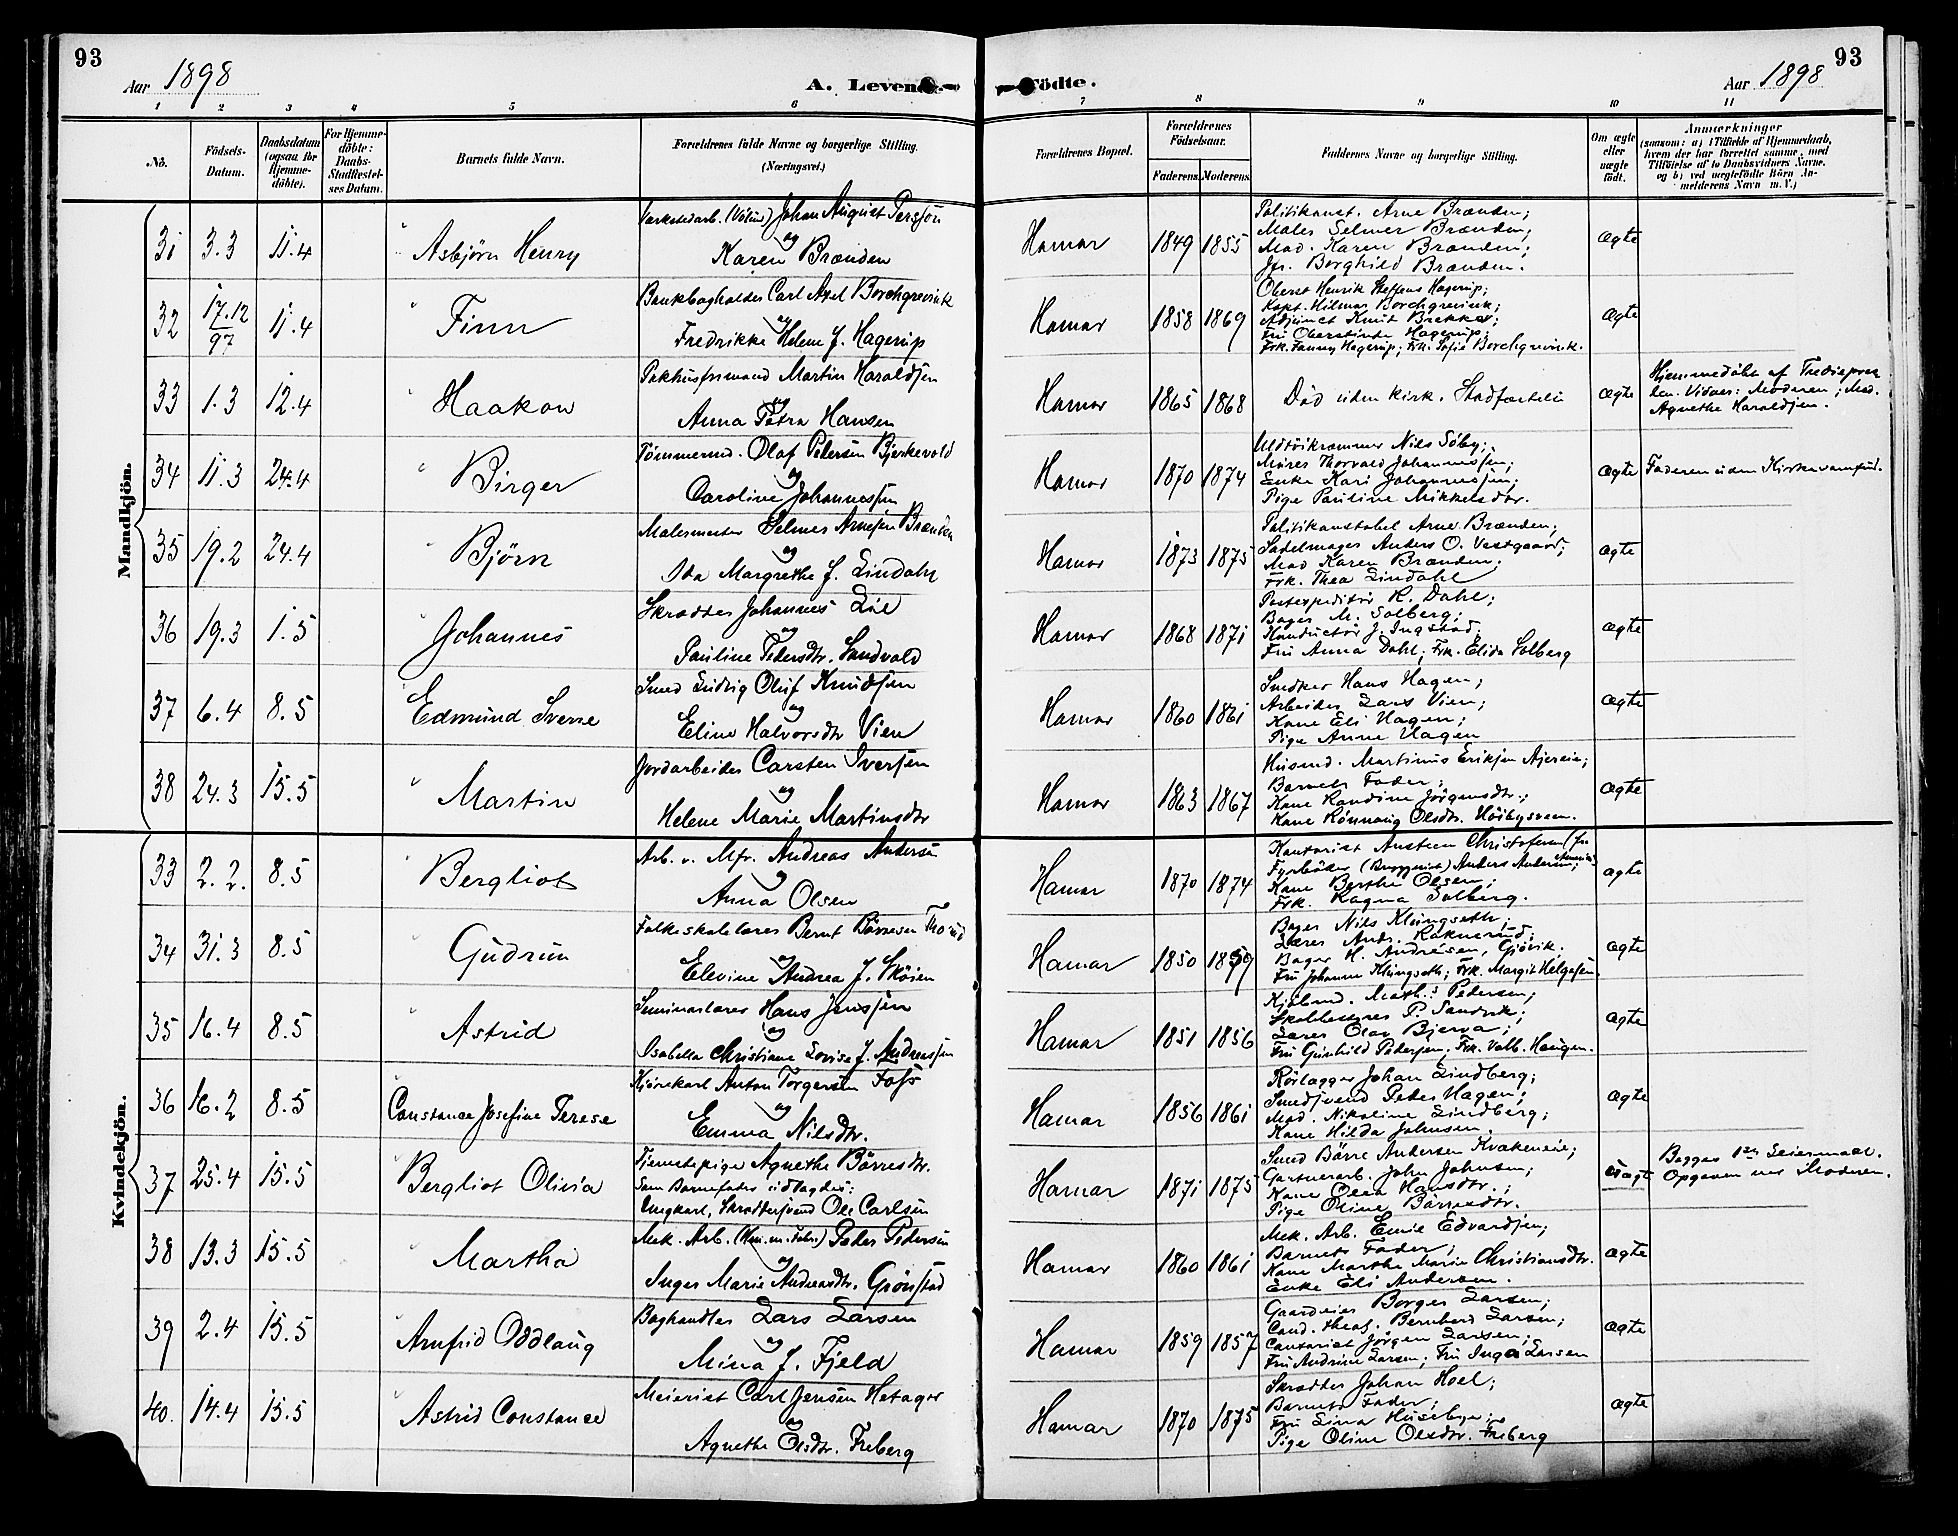 93
93
Aar 1898
A. Levende
Födte.
Aar 1898
1 2 3 4 5 6 7 8 9 10 11
No.
Födsels-Datum.
Daabsdatum (ogsaa for Hjemme-döbte).
For Hjemme-döbte: Daabs-Stadfæstel-ses Datum.
Barnets fulde Navn.
Forældrenes fulde Navne og borgerlige Stilling. (Næringsvei.)
Forældrenes Bopæl.
Forældrenes Födselsaar.
Faderens. Moderens.
Faddernes Navne og borgerlige Stilling.
Om ægte eller uægte födt.
Anmærkninger
(saasom: a) i Tilfælde af Hjemmedaab, hvem der har forrettet samme, med Tilföielse af to Daabsvidners Navne, og b) ved uægtefödte Börn Anmelderens Navn m. V.)
Mandkjön.
31 3.3 11.4 Asbjørn Henry
Johan August Persson
og
Karen Brænden
Hamar 1849 1855
Politikonst. Arne Brænden;
Maler Selmer Brænden;
Mad. Karen Brænden;
Jfr. Borghild Brænden.
ægte
32 17.12/97 11.4 Finn
Bankbogholder Carl Axel Borchgrevink
og
Fredrikke Helene J. Hagerup
Hamar 1858 1869
Oberst Henrik Steffens Hagerup;
Kapt. Hilmar Borchgrevink;
Adjunct Knut Brekke;
Fru Oberstinde Hagerup;
Frk. Fanny Hagerup; Frk. Sofie Borchgrevink.
ægte
33 1.3 12.4 Haakon
Pakhusformand Martin Haraldsen
og
Anna Petra Hansen
Hamar 1865 1868
Død uden kirk. Stadfæstelse
ægte
Hjemmedöbt af
Vidner: Moderen; Mad.
Agnethe Haraldsen.
34 11.3 24.4 Birger
Tömmermd. Olaf Petersen Bjerkevold
og
Caroline Johannessen
Hamar 1870 1874
Nils Söby;
Murer Thorvald Johannessen;
Enke Kari Johannessen;
Pige Pauline Mikkelsdtr.
ægte
Faderen uden Kirkesamfund.
35 19.2 24.4 Björn
Malermester Selmer Arnesen Brænden
og
Ida Margrethe J. Lindahl
Hamar 1873 1875
Politikonstabel Arne Brænden;
Sadelmager Anders O. Vestgaard;
Mad Karen Brænden;
Frk. Thea Lindahl
ægte
36 19.3 1.5 Johannes
Skrædder Johannes Lie
og
Pauline Pedersdtr. Sandvold
Hamar 1868 1871
Postexpeditör K. Dahl;
Bager M. Solberg;
Konductör J. Ingstad;
Fru Anna Dahl; Frk. Elida Solberg
ægte
37 6.4 8.5 Edmund Sverre
Smed Ludvig Oluf Knudsen
og
Eline Halvorsdtr Vien
Hamar 1860 1861
Snedker Hans Hagen;
Arbeider Lars Vien;
Kone Eli Hagen;
Pige Anne Hagen
ægte
38 24.3 15.5 Martin
Jordarbeider Carsten Iversen
og
Helene Marie Martinsdtr
Hamar 1863 1867
Husmd. Martinus Eriksen Ajereie;
Barnets Fader;
Kone Randine Jörgensdtr.;
Kone Rönnaug Olsdtr. Höibysveen.
ægte
Kvindekjön.
33 2.2. 8.5 Bergliot
Arb. v. Mfr. Andreas Andersen
og
Anna Olsen
Hamar 1870 1874
Kontorist Austeen Christofersen
Fyrböder Anders Andersen;
Kone Berthe Olsen;
Frk. Ragna Solberg.
ægte
34 31.3 8.5 Gudrun
Folkeskolelærer Bernt Börresen
og
Elevine Andrea J. Sköien
Hamar 1850 1859
Bager Nils Klungseth;
Lærer Andr. Raknerud;
Bager H. Andresen, Gjövik.
Fru Johanne Klungseth; Frk. Margit Helgesen.
ægte
35 16.4 8.5 Astrid
Seminarlærer Hans Jenssen
og
Isabella Christiane Lovise J. Andreassen
Hamar 1851 1856
Kjöbmd. Math.s Petersen;
Skolbestyrer P. Sandvik;
Lærer Olav Bjerva;
Fru Gunhild Petersen; Frk. Valb. Haugen.
ægte
36 16.2 8.5 Constance Josefine Terese
Kjörekarl Anton Torgersen Foss
og
Emma Nilsdtr.
Hamar 1856 1861
Rörlægger Johan Lindberg;
Smedsvend Peter Hagen;
Mad. Nikoline Lindberg;
Kone Hilda Johnsen.
ægte
37 25.4 15.5 Bergliot Olivia
Tjenestepige Agnethe Börresdtr.
Som Barnefader udlagdes:
Ungkarl, Skræddersvend Ole Carlsen
Hamar 1871 1875
Smed Börre Andersen Kvakeneie;
Gartnerarb. John Johnsen;
Kone Olea Hansdtr.;
Pige Oline Börresdtr.
uægte
Begges 1ste Leiermaal.
Opgaven ved Moderen.
38 13.3 15.5 Martha
Mek. Arb. Peder Pedersen
og
Inger Marie Andreasdtr. Grönstad
Hamar 1860 1861
Mek. Arb. Emil Edvardsen;
Barnets Fader;
Kone Marthe Marie Christiansdtr.
Enke Eli Andersen.
ægte
39 2.4 15.5 Arnfrid Oddlaug
Boghandler Lars Larsen
og
Mina J. Fjeld
Hamar 1859 1857
Gaardeier Borger Larsen;
Cand. theol. Bernhard Larsen;
Contorist Jörgen Larsen;
Fru Andrine Larsen; Fru Inga Larsen
ægte
40. 14.4 15.5 Astrid Constance
Meierist Carl Jensen Hetager
og
Agnethe Olsdtr. Freberg
Hamar 1870 1875
Skrædder Johan Hoel;
Barnets Fader;
Fru Lina Huseby;
Pige Oline Olsdtr. Freberg
ægte